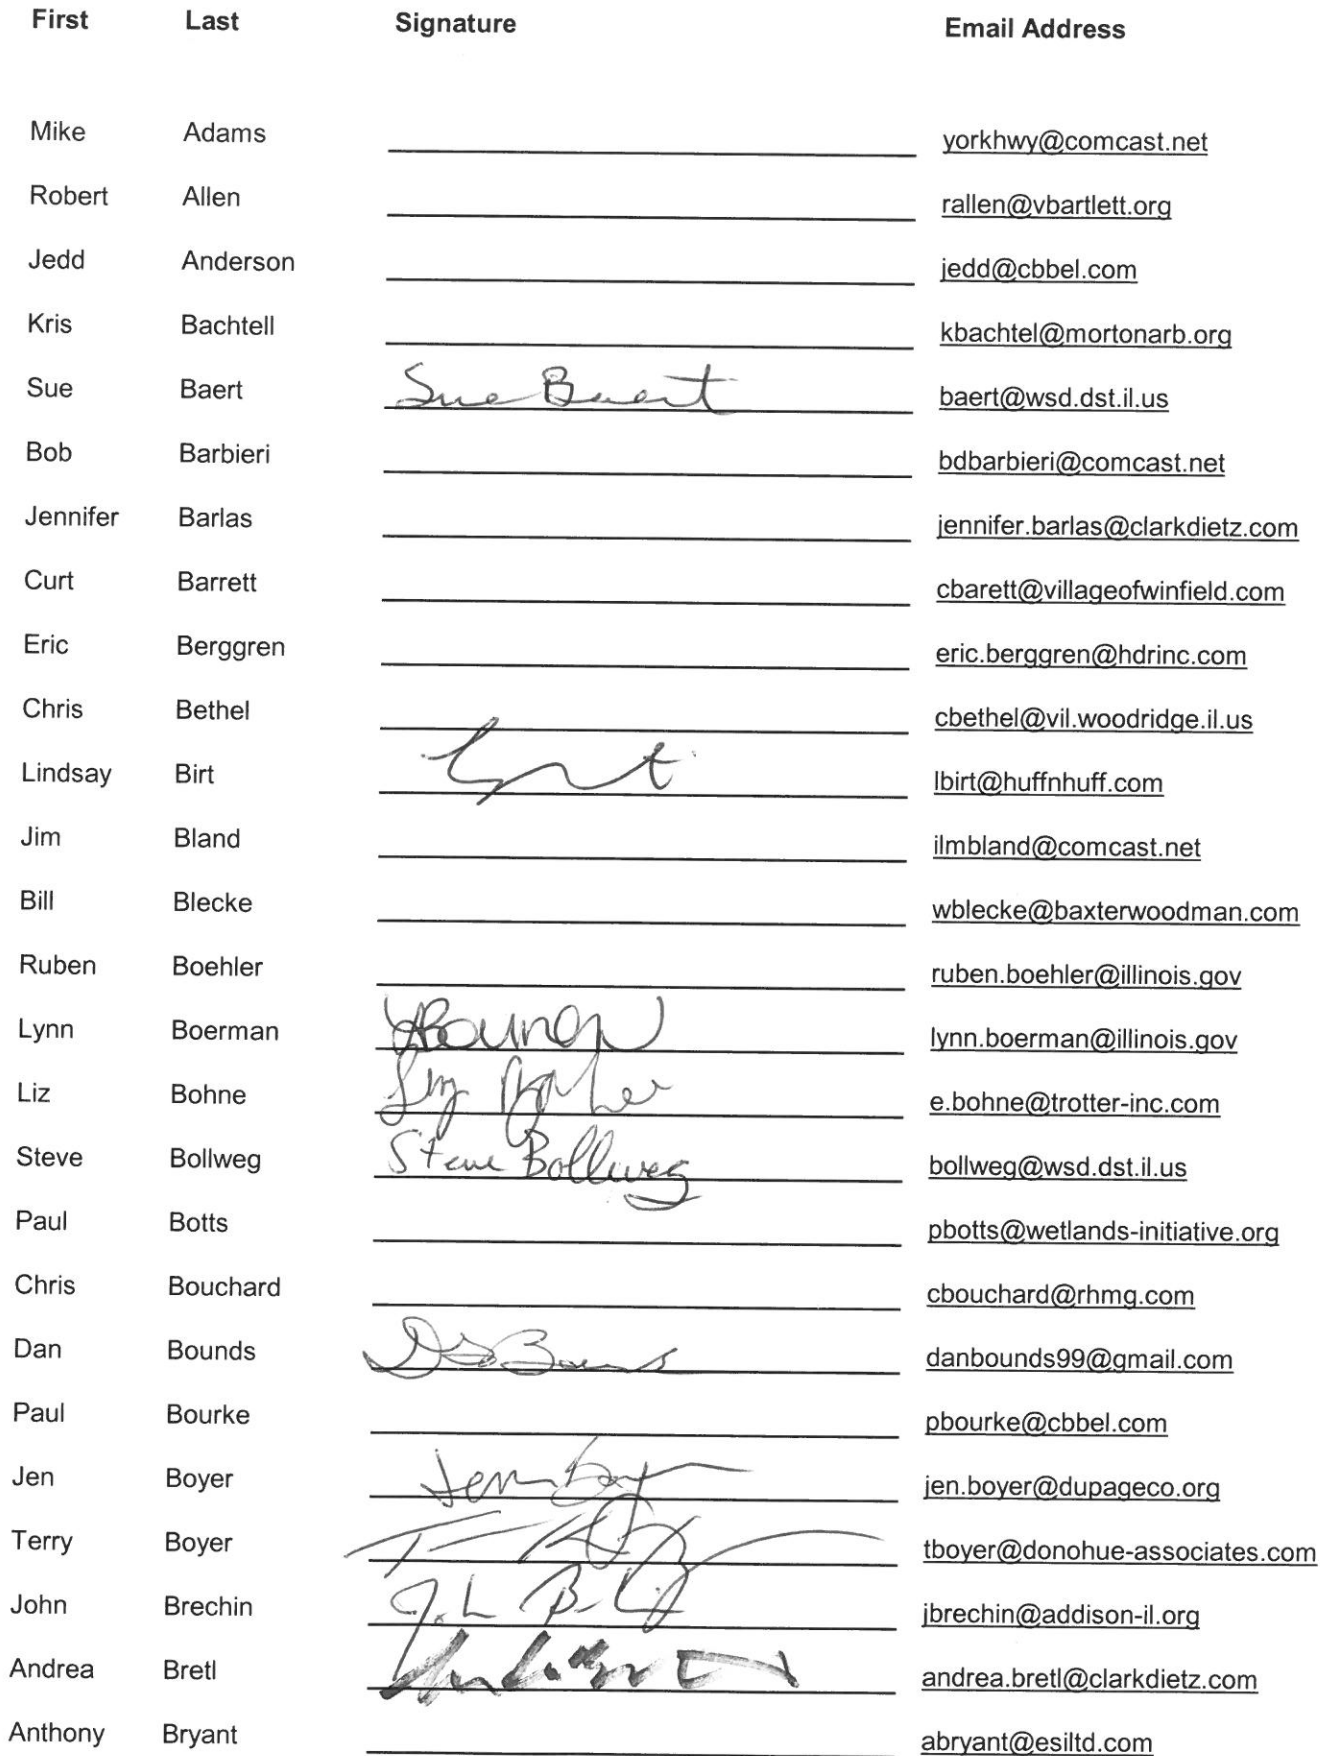 First Last Signature Email Address
Mike Adams yorkhwy@comcast.net
Robert Allen rallen@vbartlett.org
Jedd Anderson jedd@cbbel.com
Kris Bachtell kbachtel@mortonarb.org
Sue Baert Sue Baert baert@wsd.dst.il.us
Bob Barbieri bdbarbieri@comcast.net
Jennifer Barlas jennifer.barlas@clarkdietz.com
Curt Barrett cbarett@villageofwinfield.com
Eric Berggren eric.berggren@hdrinc.com
Chris Bethel cbethel@vil.woodridge.il.us
Lindsay Birt lbirt@huffnhuff.com
Jim Bland ilmbland@comcast.net
Bill Blecke wblecke@baxterwoodman.com
Ruben Boehler ruben.boehler@illinois.gov
Lynn Boerman lynn.boerman@illinois.gov
Liz Bohne e.bohne@trotter-inc.com
Steve Bollweg Steve Bollweg bollweg@wsd.dst.il.us
Paul Botts pbotts@wetlands-initiative.org
Chris Bouchard cbouchard@rhmg.com
Dan Bounds danbounds99@gmail.com
Paul Bourke pbourke@cbbel.com
Jen Boyer Jen Boyer jen.boyer@dupageco.org
Terry Boyer tboyer@donohue-associates.com
John Brechin jbrechin@addison-il.org
Andrea Bretl andrea.bretl@clarkdietz.com
Anthony Bryant abryant@esiltd.com